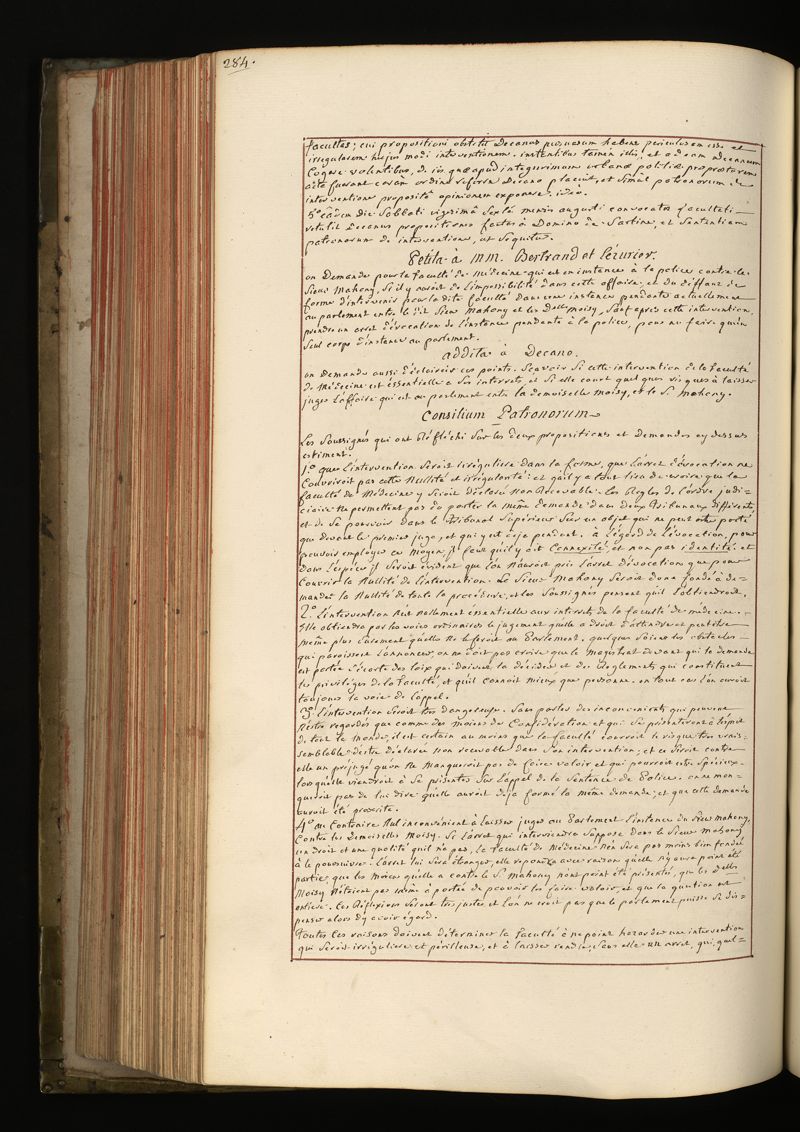 284.
facultas; cui propositioni obstitit Decanus quoniam habens periculosam esse et
irregularem hujus modi interventionem. instantibus tamen illis, et ad eam Decanum
Cogere volentibus, de iis quæ apud integerrimum urbanæ politiæ præpositum
acta fuerant coram ordine referre Decano placuit, et simul patronorum de
interventione proposità opinionem exponere. ideò.
5° eâdem die Sabbati vigesimâ sextâ mensis augusti convocatæ facultati
retulit Decanus propositiones factas à Domino de Sartine, et Sententiam
patronorum de interventione, ut sequitur.
Petita à MM. Bertrand et Lézurier.
on Demande pour la faculté de Médecine qui est en instance à la police contre le
Sieur Mahony, s'il y auroit de l'impossibilité dans cette affaire, et du deffaut de
forme d'intervenir pour la dite faculté dans une instance pendante actuellement
au parlement entre le dit Sieur Mahony et les Delles Moisy, sauf après cette intervention,
prendre un arret d'évocation de l'instance pendante à la police, pour ne faire qu'un
seul corps d'instance au parlement.
addita à Decano.
on Demande aussi d'éclaircir ces points. Sçavoir si cette intervention de la faculté
de Médecine est essentielle a ses interrets, et si elle court quelques risques à laisser
juger l'affaire qui est au parlement entre la demoiselle Moisy, et le Sr. Mahony.
Consilium Patronorum
Les Soussignés qui ont réfléchi sur les deux propositions et Demandes cy dessus
estiment.
1° que l'intervention seroit irréguliere dans la forme, que l'arret d'évocation ne
Couvriroit pas cette Nullité et irrégularité: et qu'il y a tout lieu de croire que la
faculté de Médecine y seroit déclarée Non Recevable. Les Regles de l'ordre judi=
ciaire ne permettent pas de porter la même demande dans deux Tribunaux differents,
et de se pourvoir dans le Tribunal Supérieur sur un objet qui ne peut estre porté
que devant le premier juge, et qui y est deja pendant. à l'égard de l'évocation, pour
pouvoir employer ce moyen, il faut qu'il y ait Connexité, et non pas identité. et
dans l'espece il seroit évident que l'on n'auroit pris l'arret d'évocation que pour
Couvrir la Nullité de l'intervention. Le Sieur Mahony seroit donc fondé à de=
mander la Nullité de toute la procédure, et les Soussignés pensent qu'il l'obtiendroit.
2° L'intervention n'est nullement essentielle aux interrets de la faculté de médecine.
Elle obtiendra par les voies ordinaires le jugement quelle a droit d'attendre et peut estre
même plus surement qu'elle ne le feroit au Parlement. quelques soient les obstacles
qui paroissent l'annoncer, on ne doit pas croire que le Magistrat devant qui la demande
est portée s'écarte des loix qui doivent la décider et des Reglements qui constituent
les priviléges de la faculté, et qu'il connoit mieux que personne. en tout cas l'on auroit
toujours la voie de l'appel.
3° L'intervention seroit très dangereuse. Sans parler des inconvenients qui peuvent
n'estre regardés que comme des moiens de Considération et qui se présenteront à l'esprit
de tout le monde, il est certain au moins que la faculté courroit le risque très vrai=
semblable d'estre déclarée Non recevable dans son intervention; et ce seroit contre
elle un préjugé qu'on ne manqueroit pas de faire valoir et qui pourroit estre spécieux
lorsqu'elle viendroit à se présenter sur l'appel de la Sentence de Police. on ne man=
queroit pas de lui dire qu'elle auroit deja formé la même demande; et que cette demande
auroit été proscrite.
4° au Contraire Nul inconvenient à laisser juger au Parlement l'instance du Sieur Mahony
Contre les demoiselles Moisy. Si l'arret qui interviendra suppose dans le Sieur Mahony
un droit et une qualité qu'il n'a pas, la faculté de Médecine n'en sera pas moins bien fondée
à le poursuivre. l'arret lui sera étranger, elle repondra avec raison qu'elle n'y aura point été
partie, que les moiens qu'elle a contre le S. Mahony n'ont point été présentés, que les delles
Moisy n'étoient pas même à portée de pouvoir les faire valoir, et que la question est
entiere. Ces Réflexions seront très justes, et l'on ne croit pas que le parlement puisse se dis=
penser alors d'y avoir égard.
Toutes ces raisons doivent déterminer la faculté à ne point hazarder une intervention
qui seroit irréguliere et périlleuse, et à laisser rendre, sans elle un arret, qui, quel=